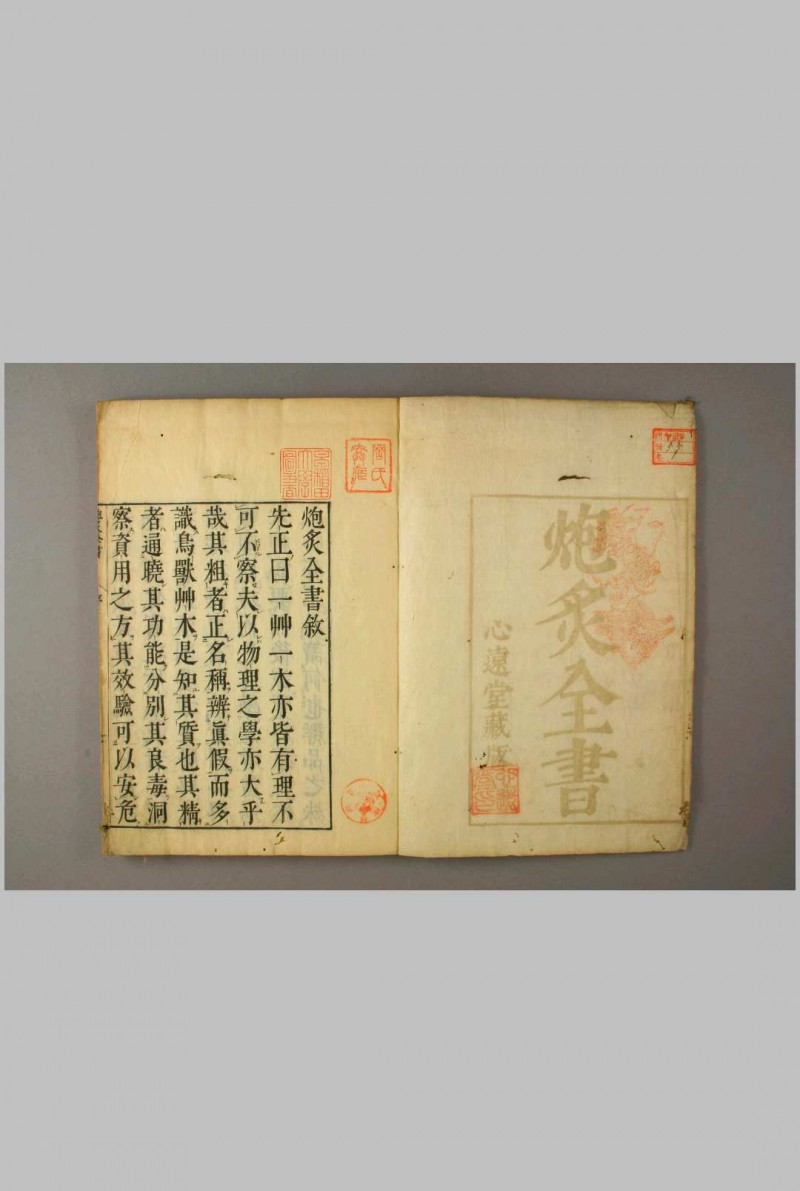 炮炙全書
心遠堂藏版
炮炙全書敘
先正曰一艸一木亦皆有理不
可不察夫以物理之學亦大乎
哉其粗者正名稱辨眞假而多
識鳥獸艸木是知其質也其精
者通曉其功能分別其良毒洞
察資用之方其效驗可以安危